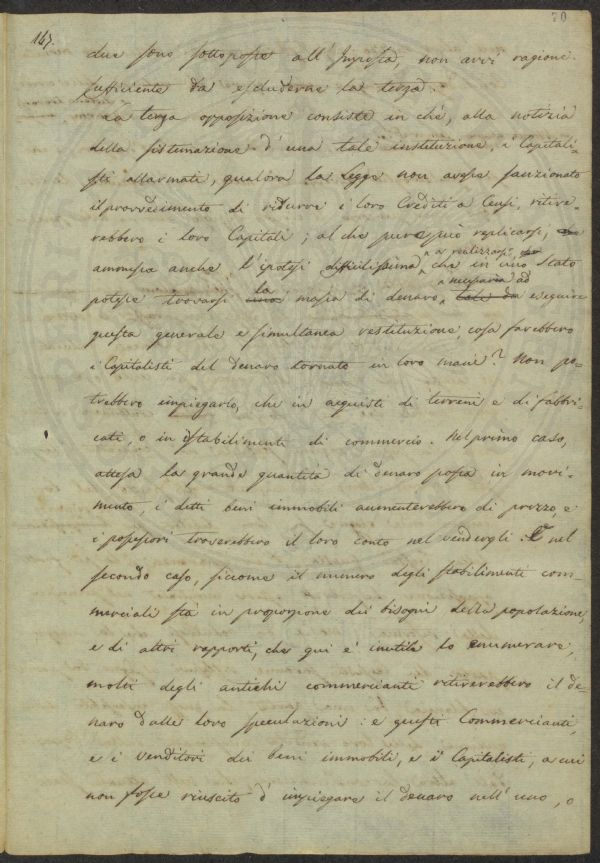 147.
70
due sono sottoposte all'Imposta, non avvi ragione
sufficiente da escluderne la terza.
La terza opposizione consiste in ciò, alla notizia
della sistemazione d'una tale instituzione, i Capitali-
sti allarmati, qualora la Legge non avesse sanzionato
il provvedimento di ridurre i loro Crediti a Censi, ritire-
rebbero i loro Capitali; al che pure può replicarsi,
ammessa anche l'ipotesi difficilissima a realizzarsi, che in uno Stato
potesse trovarsi la massa di denaro necessaria ad eseguire
questa generale e simultanea restituzione, cosa farebbero
i Capitalisti del denaro tornato in loro mani? Non po-
trebbero impiegarlo, che in acquisti di terreni e di fabbri-
cati, o in istabilimenti di commercio. Nel primo caso,
attesa la grande quantità di denaro posta in movi-
mento, i detti beni immobili aumenterebbero di prezzo, e
i possessori troverebbero il loro conto nel vendergli: E nel
secondo caso, siccome il numero degli stabilimenti com-
merciali stà in proporzione dei bisogni della popolazione,
e di altri rapporti, che qui è inutile lo enumerare,
molti degli antichi commercianti ritirerebbero il de-
naro dalle loro speculazioni: e questi Commercianti,
e i venditori dei beni immobili, e i Capitalisti, a cui
non fosse riuscito d'impiegare il denaro nell'uno, o